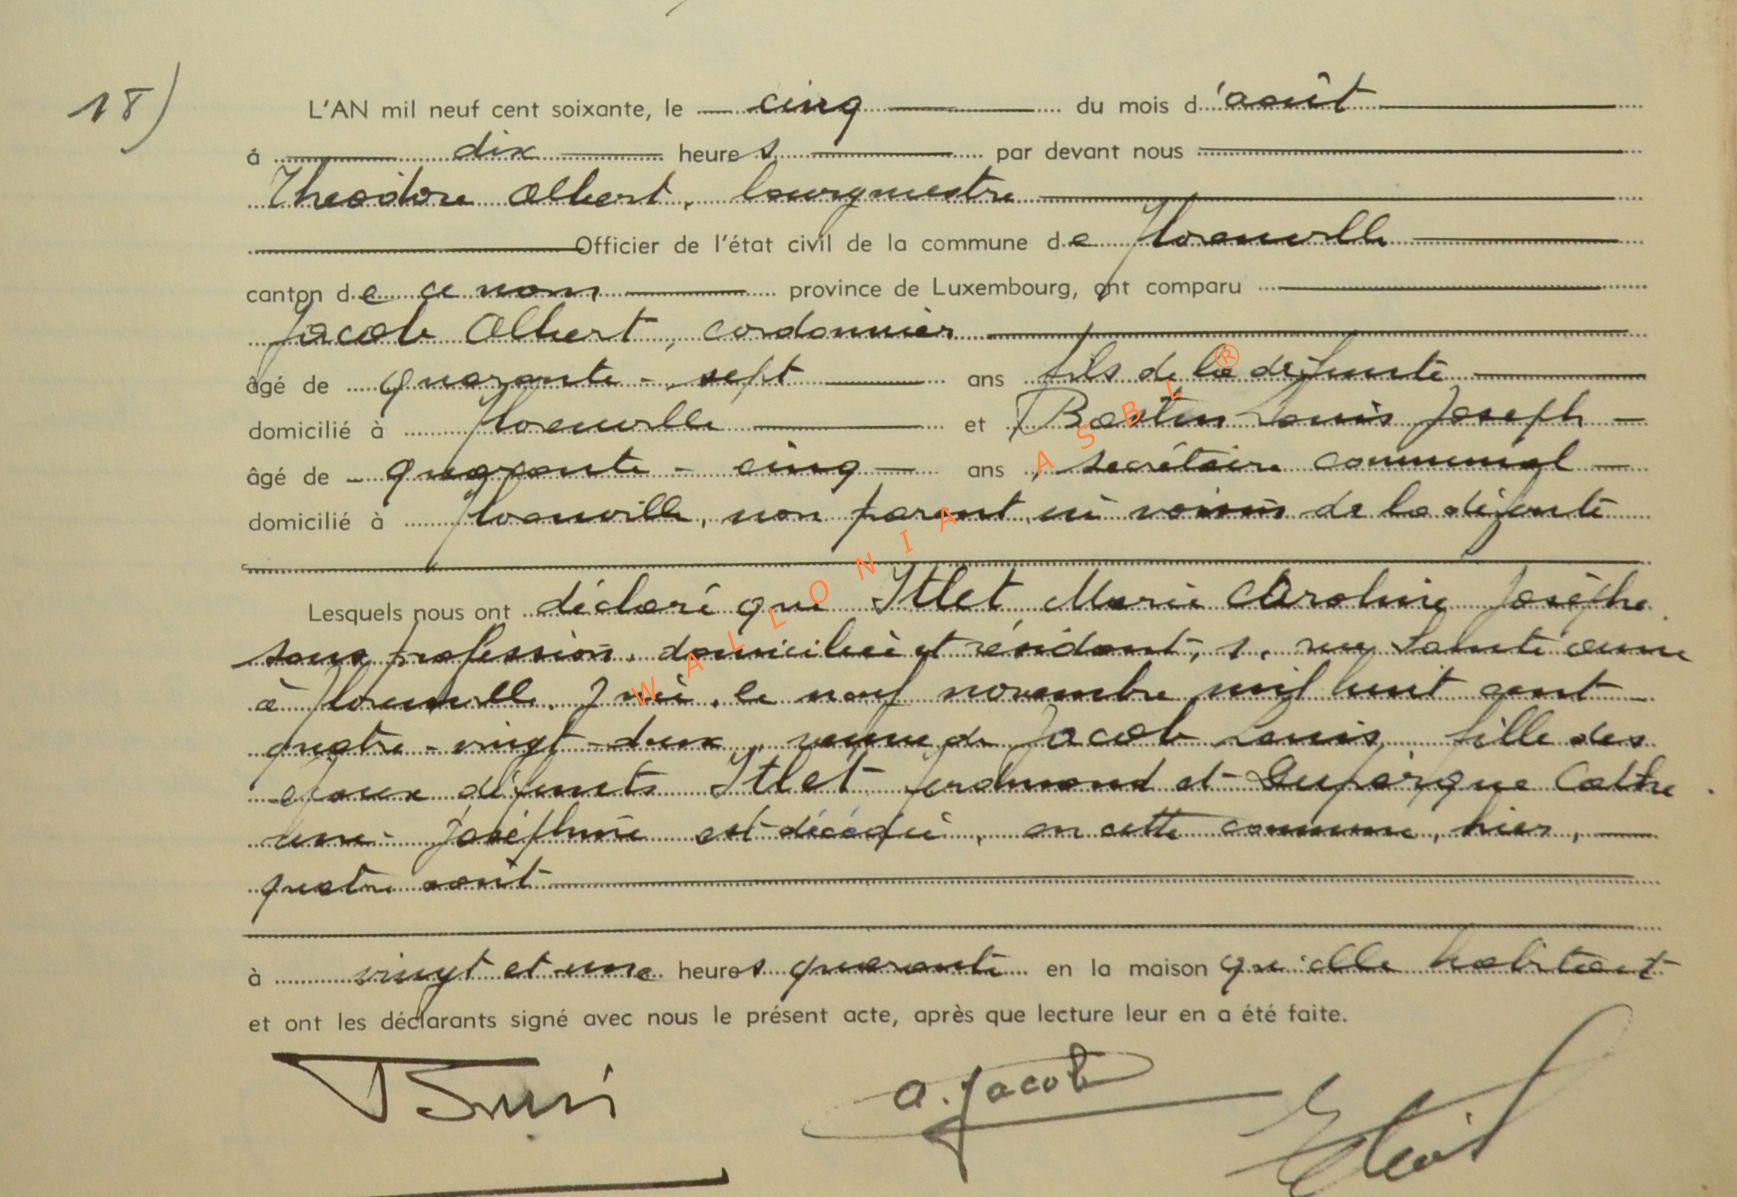 18)
L'AN mil neuf cent soixante, le cinq du mois d'août
à dix heures par devant nous
Théodore Albert, bourgmestre
Officier de l'état civil de la commune de Florenville
canton de ce nom province de Luxembourg, ont comparu
Jacob Albert, cordonnier
âgé de quarante-sept ans fils de la défunte
domicilié à Florenville et Bastin Louis Joseph
âgé de quarante-cinq ans, secrétaire communal
domicilié à Florenville, non parent ni voisin de la défunte
Lesquels nous ont déclaré que Itlet Marie Caroline Josèphe
sans profession, domiciliée et résidant, 1, rue Sainte Anne
à Florenville. Y née, le neuf novembre mil huit cent
quatre-vingt-deux, veuve de Jacob Louis, fille des
époux défunts Itlet Ferdinand et Duparque Cathe
rine-Joséphine est décédée, en cette commune, hier,
quatre août
à vingt et une heures quarante en la maison qu'elle habitait
et ont les déclarants signé avec nous le présent acte, après que lecture leur en a été faite.
A. Jacob
WALLONIA ASBL ®